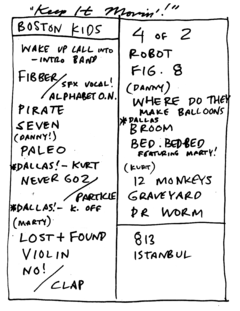 "Keep It Movin'!!"
BOSTON KIDS
WAKE UP CALL INTO
- INTRO BAND
FIBBER/
SFX VOCAL!
ALPHABET O.N.
PIRATE
SEVEN
(DANNY!)
PALEO
*DALLAS! - KURT
NEVER GO2/
PARTICLE
*DALLAS! - K. OFF
(MARTY)
LOST + FOUND
VIOLIN
NO!/
CLAP
4 OF 2
ROBOT
FIG. 8
(DANNY)
WHERE DO THEY
MAKE BALLOONS
*DALLAS
BROOM
BED.BEDBED
FEATURING MARTY!
(KURT)
12 MONKEYS
GRAVEYARD
DR WORM
813
ISTANBUL